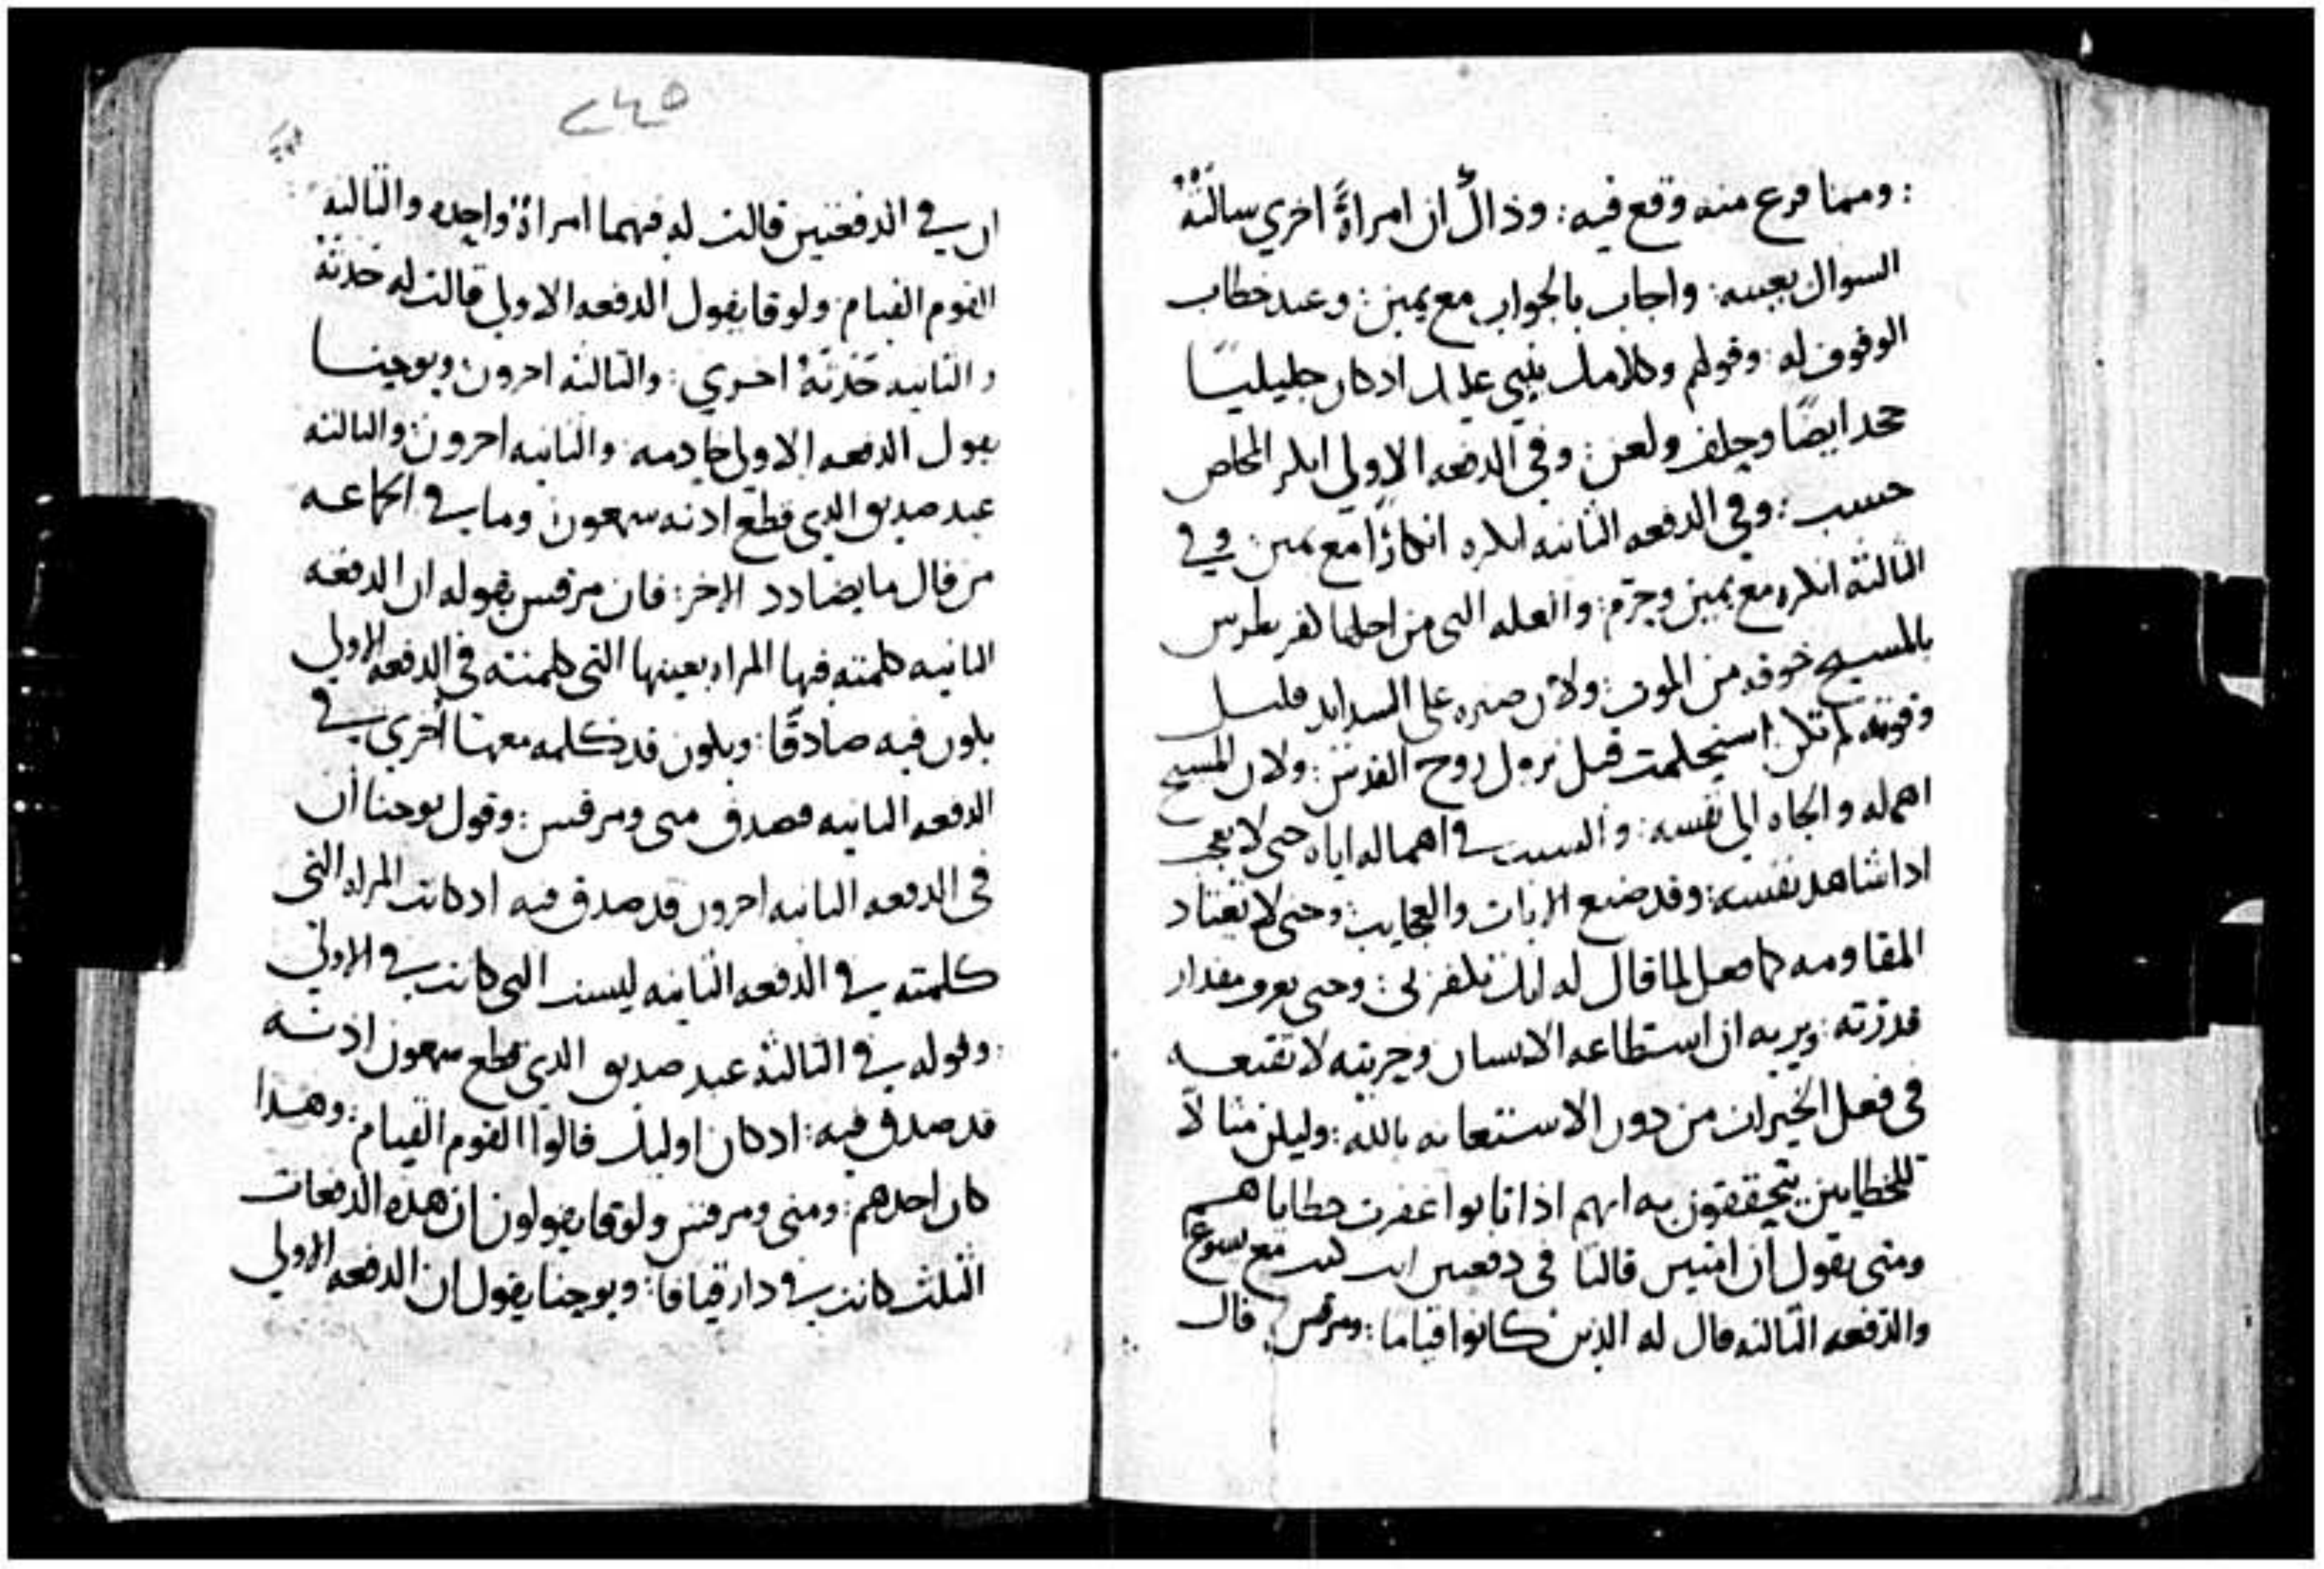 : ومما فزع منه وقع فيه : وذاك ان امراةً اخري سالته
السوال بعينه : واجاب بالجواب مع يمين : وعند خطاب
الوقوف له : وقولهم وكلامك ينبي عليك اذ كان جليليًا
جحد ايضًا وحلف ولعن : وفي الدفعه الاولي انكر
حسب : وفي الدفعه الثانيه انكره انكارًا مع يمين : وفي
الثالثه انكره مع يمين وحرم : والعله التي من اجلها كفر بطرس
بالمسيح خوفه من الموت : ولان صبره على الشدايد قليل
وقوته لم تكن استحكمت قبل نزول روح القدس : ولان المسيح
اهمله والجاه الي نفسه : والسبب في اهماله اياه حتى لا يعجب
اذا شاهد نفسه : وقد صنع الايات والعجايب : وحتى لا يعتاد
المقاومه كما فعل لما قال له انك تكفر بي : وحتى يعرف مقدار
قدرته : ويريه ان استطاعه الانسان وحريته لا تقنعه
في فعل الخيرات من دون الاستعانه بالله : وليكن مثالاً
للخطايين يتحققون به انهم اذا تابوا غفرت خطاياهم
ومتى يقول ان امتين قالتا في دفعتين انت كنت مع يسوع
والدفعه الثالثه قال له الذين كانوا قيامًا : ومرقس قال
٢٤٥
ان في الدفعتين قالت له فيهما امراةٌ واحده والثالثه
القوم القيام : ولوقا يقول الدفعه الاولي قالت له حدثه
والثانيه حدثه اخري : والثالثه اخرون ويوحنا
يقول الدفعه الاولي خادمه : والثانيه اخرون والثالثه
عبد صديق الذي قطع اذنه سمعون وما في الجماعه
من قال ما يضادد الاخر : فان مرقس بقوله ان الدفعه
الثانيه كلمته فيها المراه بعينها التي كلمته في الدفعه الاولي
يكون فيه صادقًا : ويكون قد كلمه معها اخري في
الدفعه الثانيه فصدق متى ومرقس : وقول يوحنا ان
في الدفعه الثانيه اخرون قد صدق فيه اذ كانت المراه التي
كلمته في الدفعه الثانيه ليست التي كانت في الاولى
: وقوله في الثالثه عبد صديق الذي قطع سمعون اذنه
قد صدق فيه : اذ كان اوليك قالوا القوم القيام : وهذا
كان احدهم : ومتى ومرقس ولوقا يقولون ان هذه الدفعات
الثلث كانت في دار قيافا : ويوحنا يقول ان الدفعه الاولي